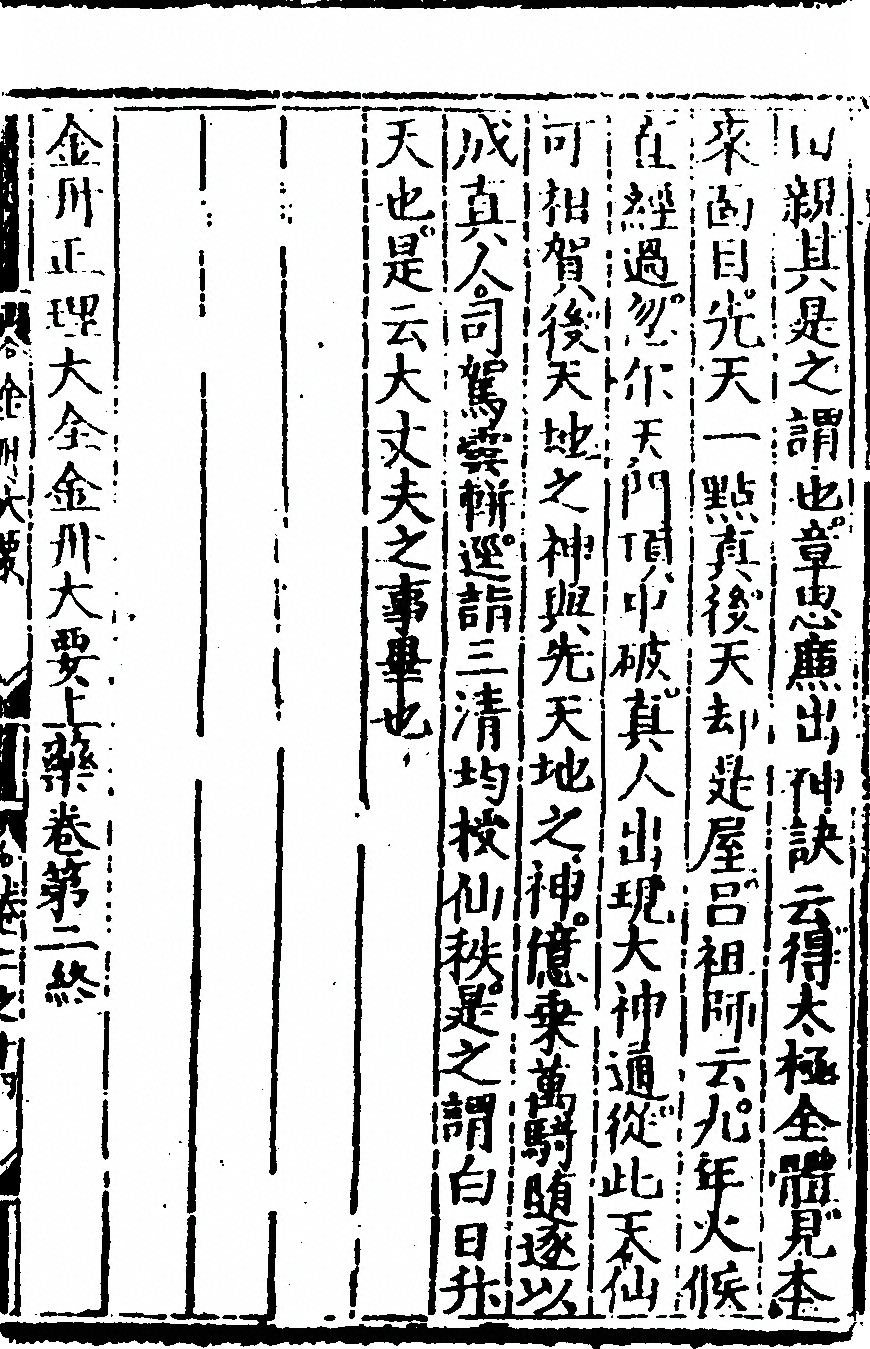 親其是之謂也章思廉出神訣云得太極全體見本
來面目先天一點真後天却是屋呂祖師云九年火候
直經過忽尓天門頂中破真人出現大神通從此天仙
可相賀後天地之神與先天地之神億乗萬騎随逐以
成真人司駕雲軿逕詣三清均授仙秩是之謂白日升
天也是云大丈夫之事畢也
金丹正理大全金丹大要上藥卷第二終
金丹大要
卷二之十四